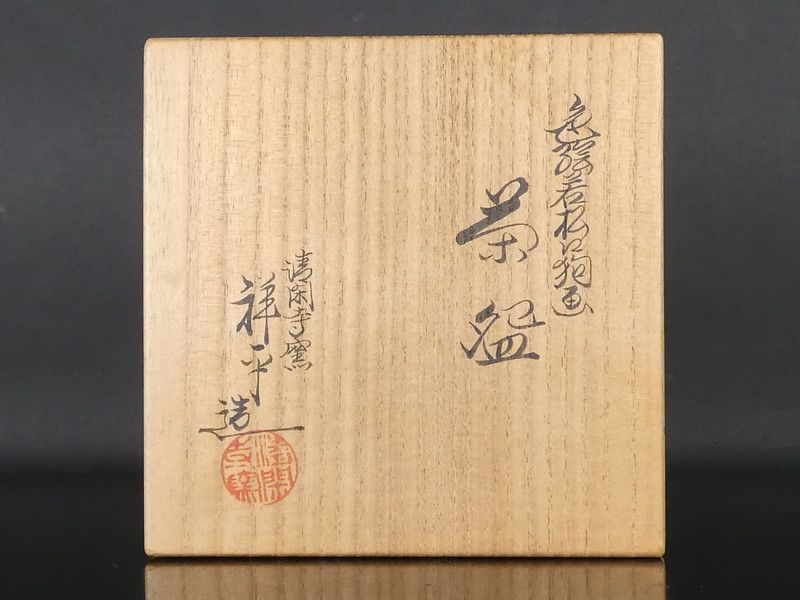 色絵若松に狗画
茶盌
清閑寺窯
祥平
造
清閑寺窯